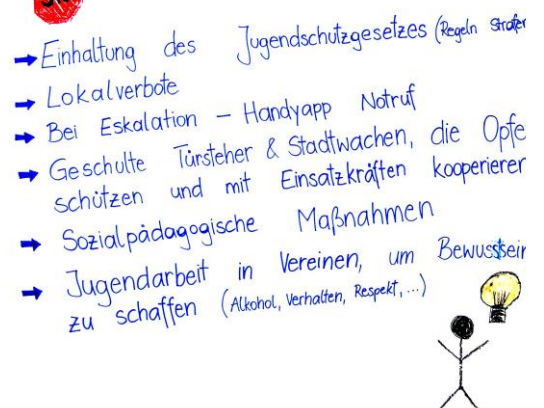 → Einhaltung des Jugendschutzgesetzes (Regeln Strafen
→ Lokalverbote
→ Bei Eskalation – Handyapp Notruf
→ Geschulte Türsteher & Stadtwachen, die Opfe
schützen und mit Einsatzkräften kooperieren
→ Sozialpädagogische Maßnahmen
→ Jugendarbeit in Vereinen, um Bewusstsein
zu schaffen (Alkohol, Verhalten, Respekt,...)